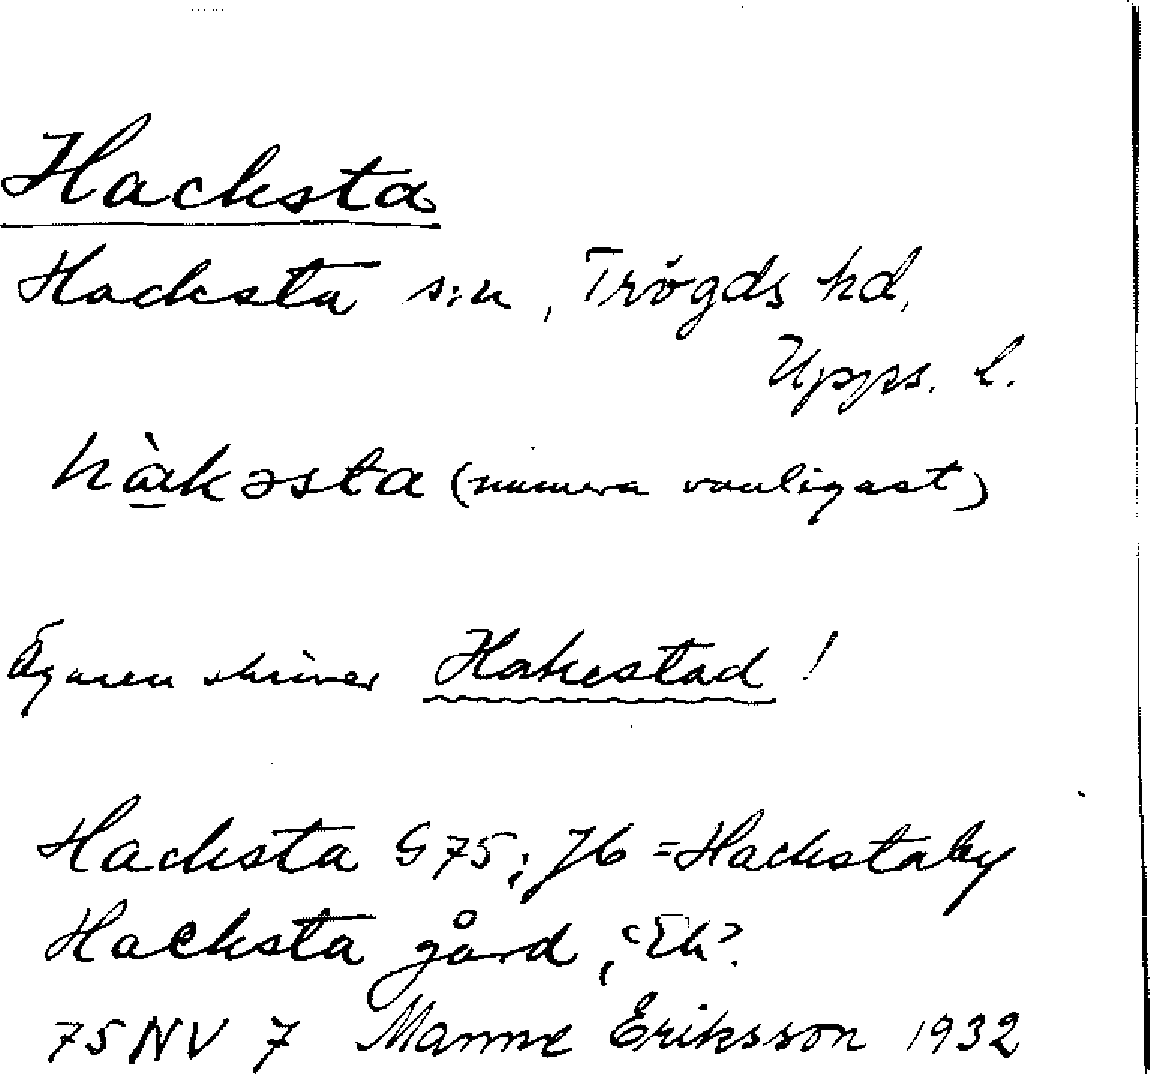 Hacksta
Hacksta s:n, Trögds hd,
Upps. l.
hàkəsta (numera vanligast)
Ägaren skriver Hakestad!
Hacksta G 75; Jb = Hackstaby
Hacksta gård, Ek?
75 NV 7 Manne Eriksson 1932